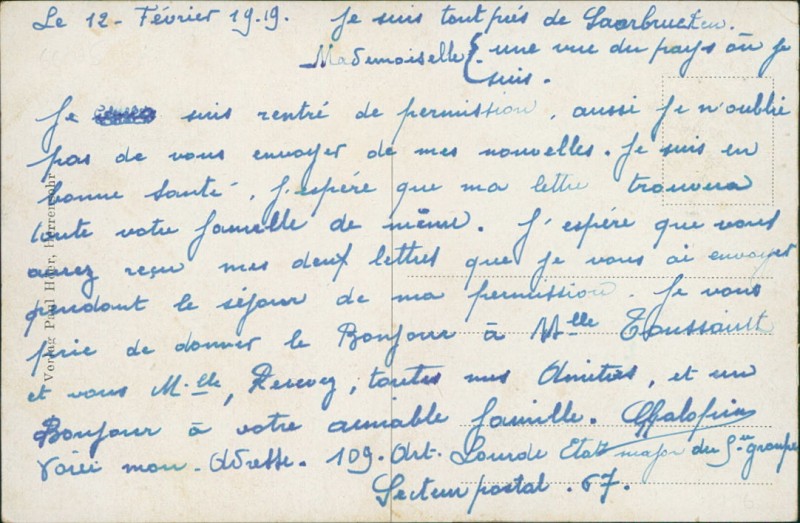 Le 12 - Février 19.19. Je suis tout près de Saarbrucken.
Mademoiselle { une vue du pays où je
suis.
Je suis rentré de permission, aussi Je n'oublie
pas de vous envoyer de mes nouvelles. Je suis en
bonne Santé, J'espére que ma lettre trouvera
toute votre famille de même. J'espére que vous
avez reçu mes deux lettres que je vous ai envoyer
pendant le séjour de ma permission. Je vous
prie de donner le Bonjour à Mlle Toussault
et vous Mlle, Recevez, toutes mes Amitiés, et un
Bonjour à votre aimable famille.
Voici mon. Adresse. 109. Art. Lourde Etat major du 5e groupe
Secteur postal. 67.
Verlag Paul Herrensohr